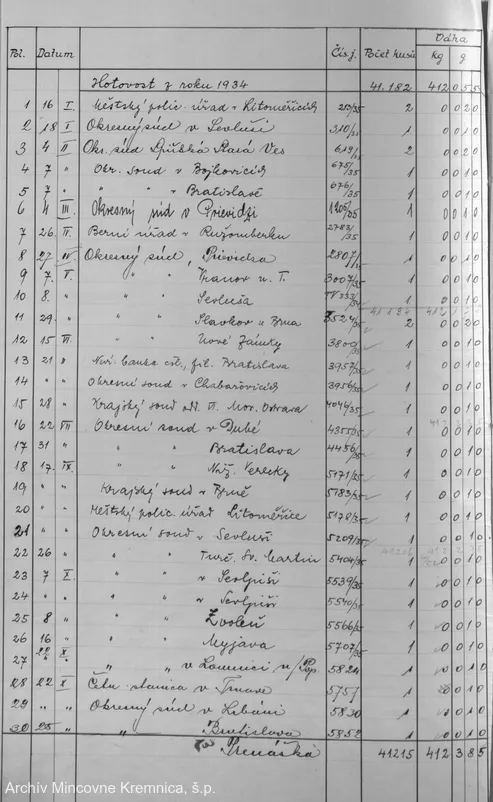 Pol. Datum Čís.j. Počet kusů Váha kg g
Hotovost z roku 1934 41.182 412 0 5 5
1 16 I. Městský polic. úřad v Litoměřicích 25/35 2 0 0 2 0
2 18 I. Okresný súd v Sevluši 310/35 1 0 0 1 0
3 4 II Okr. súd Spišská Stará Ves 619/35 2 0 0 2 0
4 7 " Okr. soud v Bojkovicích 675/35 1 0 0 1 0
5 7 " " " v Bratislavě 676/35 1 0 0 1 0
6 4 III. Okresný súd v Prievidzi 1205/35 1 0 0 1 0
7 26. Berní úřad v Ružomberku 2783/35 1 0 0 1 0
8 27 IV Okresný súd, Prievidza 2807/35 1 0 0 1 0
9 7. V. " " Vranov n. T. 3007/35 1 0 0 1 0
10 8. " " " Sevluša 1 0 0 1 0
11 29. " " " Slavkov u Brna 3527/35 2 0 0 2 0
12 15 VI. " " Nové Zámky 3809/35 1 0 0 1 0
13 21 " Nár. banka čsl., fil. Bratislava 3957/35 1 0 0 1 0
14 " " Okresní soud v Chabařovicích 3956/35 1 0 0 1 0
15 28 " Krajský soud odd. VI. Mor. Ostrava 4046/35 1 0 0 1 0
16 22 VII Okresní soud v Dubé 4355/35 1 0 0 1 0
17 31 " " " Bratislava 4456/35 1 0 0 1 0
18 17. IX. " " Niž. Verecky 5171/35 1 0 0 1 0
19 " " Krajský soud v Brně 5183/35 1 0 0 1 0
20 " " Městský polic. úřad Litoměřice 5178/35 1 0 0 1 0
21 " " Okresní soud v Sevluši 5209/35 1 0 0 1 0
22 26 " " " Turč. Sv. Martin 5404/35 1 0 0 1 0
23 7 X. " " v Sevljuši 5539/35 1 0 0 1 0
24 " " " " v Sevljuši 5540/35 1 0 0 1 0
25 8 " " " Zvoleň 5566/35 1 0 0 1 0
26 16 " " " Myjava 5707/35 1 0 0 1 0
27 22 X. " " v Lomnici n/Pop. 5824 1 0 0 1 0
28 22 X Četn. stanica v Trnave 5757 1 0 0 1 0
29 " " Okresný súd v Libáni 5830 1 0 0 1 0
30 25 " " Bratislava 5852 1 0 0 1 0
Prenáška 41215 412 3 8 5
Archív Mincovne Kremnica, š.p.